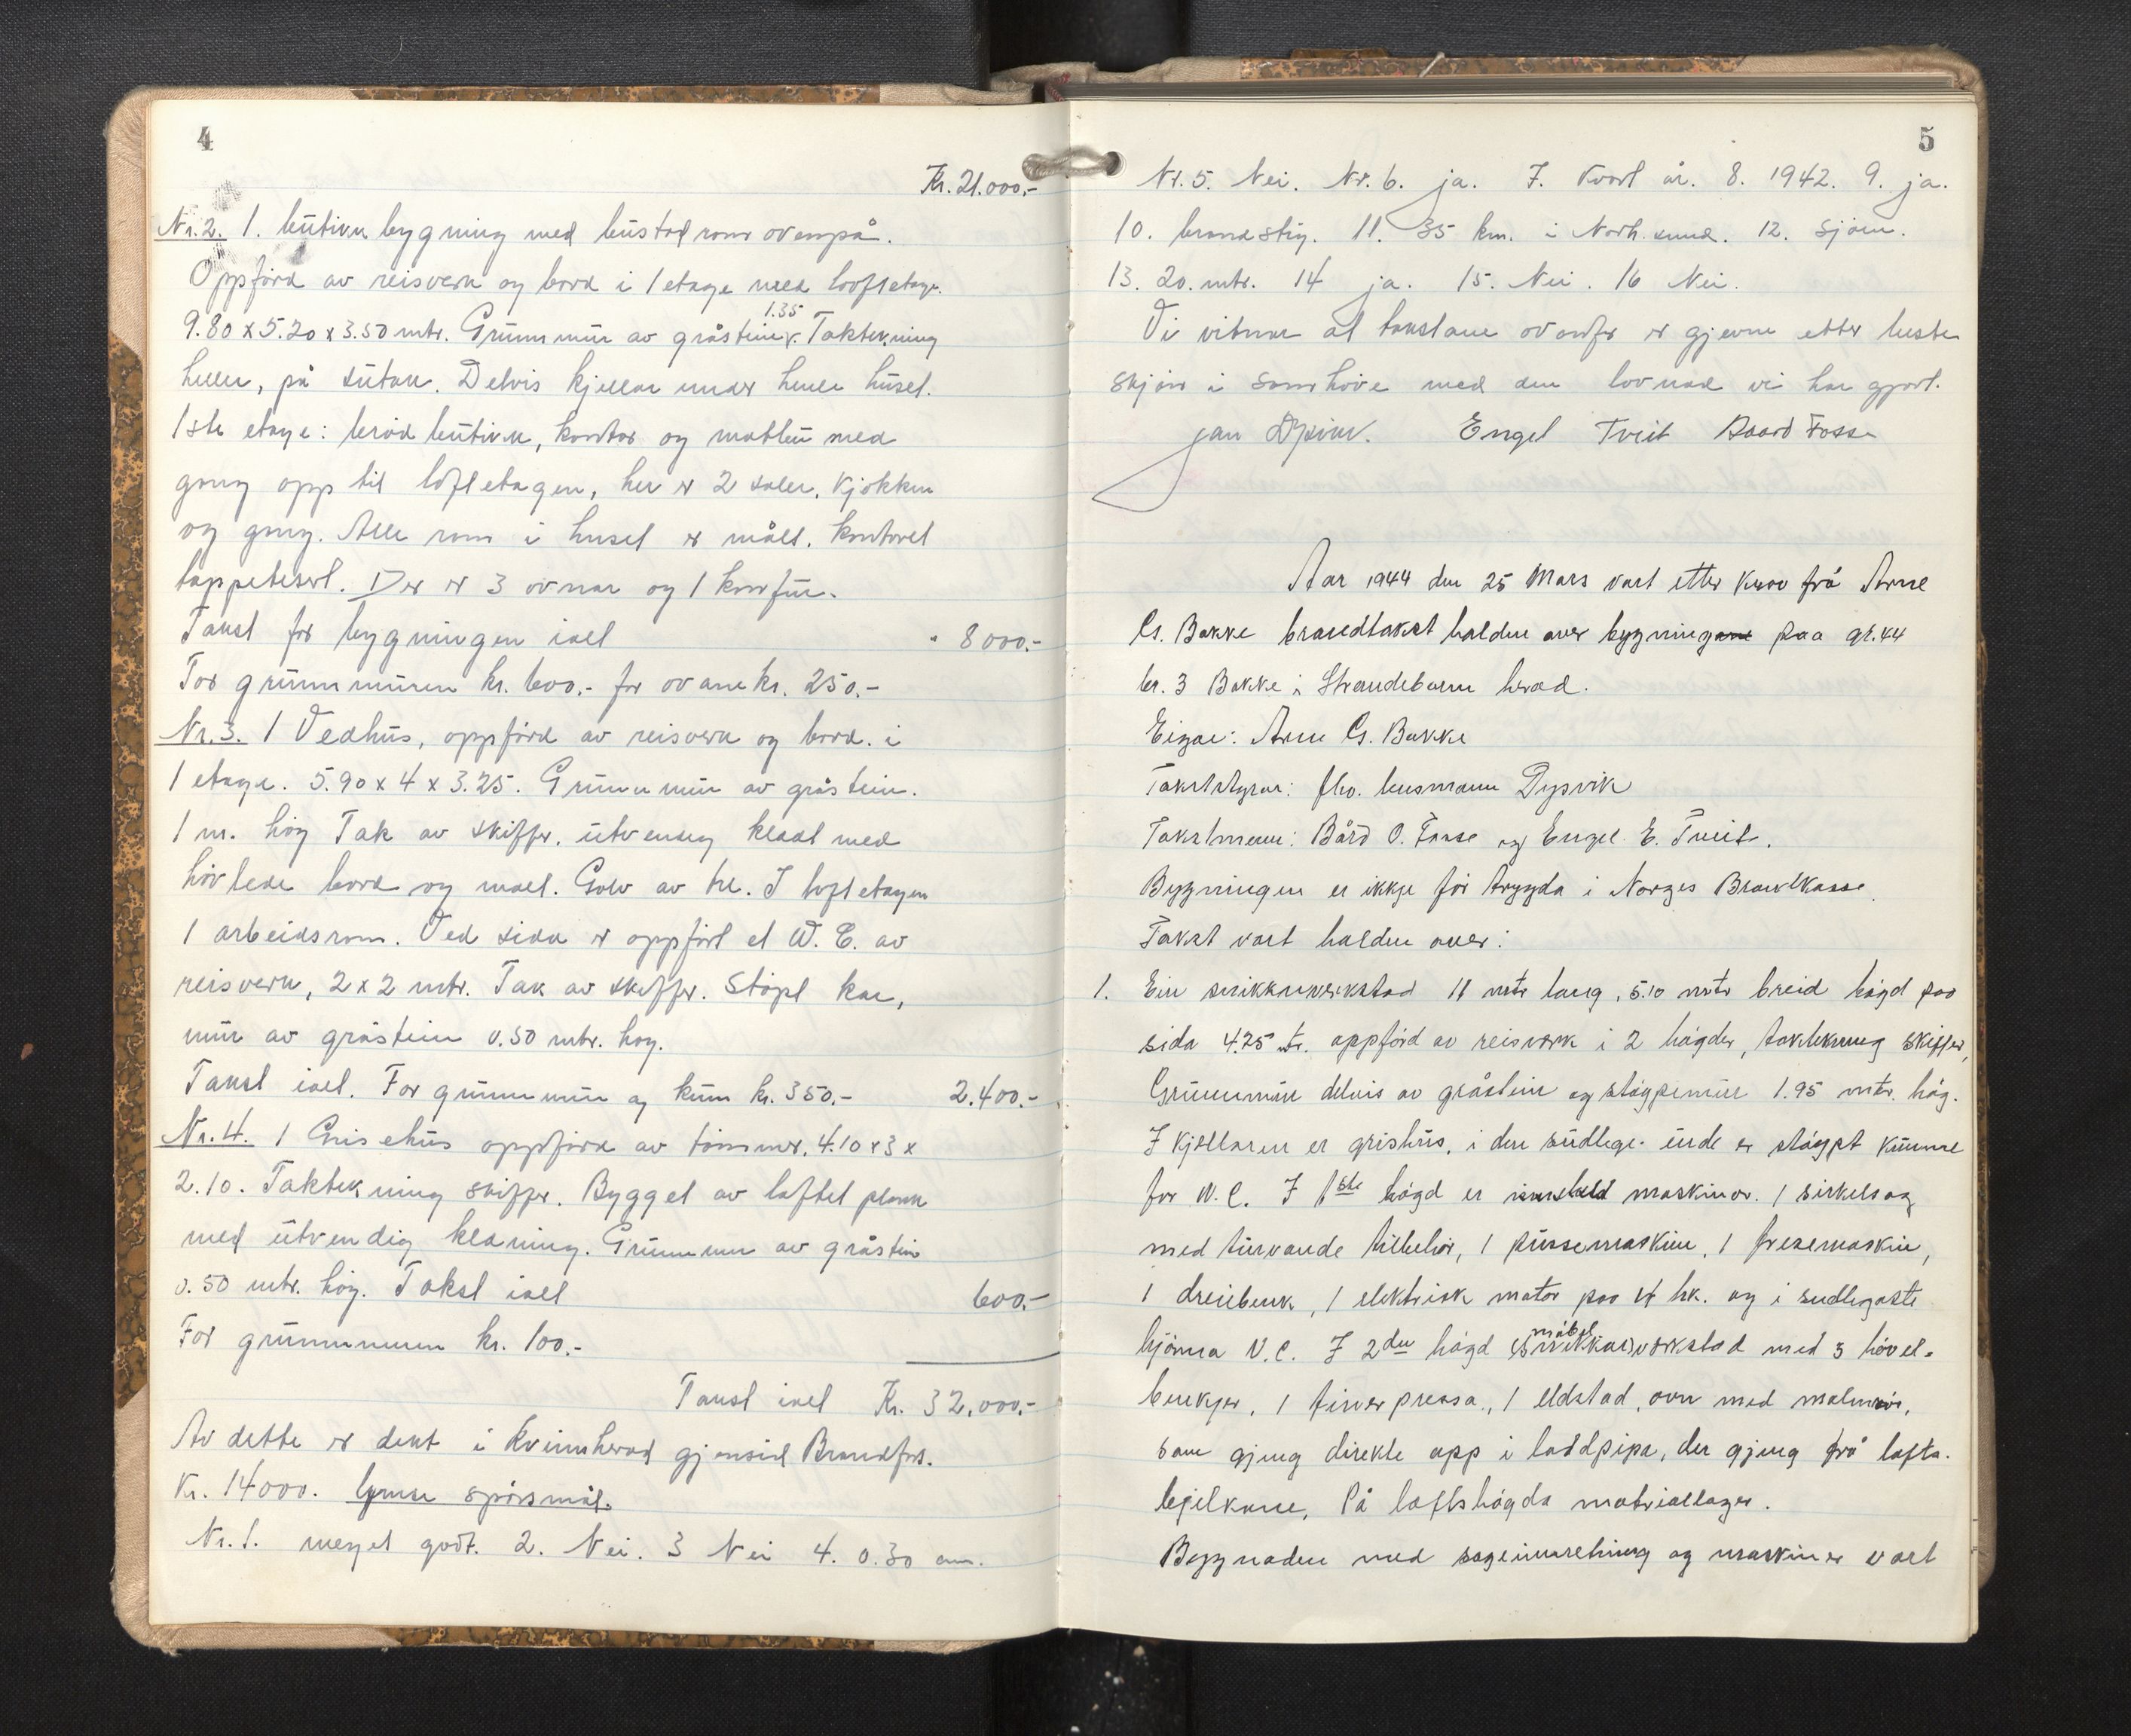 4
Kr. 21.000.-
Nr. 2. 1. butikk bygning med bustad rom ovenpå.
Oppförd av reisverk og bord i 1 etage med loftetage.
9.80 x 5.20 x 3.50 mtr. Grunnmur av gråstein 1.35 Taktekning
heller, på sutak. Delvis kjellar under heile huset.
1ste etage: bröd butikk, kontor og matbu med
gang opp til loftetagen, her er 2 saler, kjökken
og gang. Alle rom i huset er målt. kontoret
tappetsert. Der er 3 ovnar og 1 komfur.
Takst for bygningen ialt " 8000.-
For grunnmuren kr. 600.- for ovane kr. 250.-
Nr. 3. 1 Vedhus, oppförd av reisverk og bord. i
1 etage. 5.90 x 4 x 3.25. Grunnmur av gråstein.
1 m. hög Tak av skiffer. utvendig kledd med
hövlede bord og malt. Golv av tre. I loftetagen
1 arbeidsrom. Ved sida er oppfört et W. C. av
reisverk, 2 x 2 mtr. Tak av skiffer. Stöpt kar,
mur av gråstein 0.50 mtr. hög.
Takst ialt. For grunnmur og kum kr. 350.- 2.400.-
Nr. 4. 1 Grisehus oppförd av tömmer. 4.10 x 3 x
2.10. Taktekning skiffer. Bygget av loftet plank
med utvendig kledning. Grunnmur av gråstein
0.50 mtr. hög. Takst ialt 600.-
For grunnmuren kr. 100.-
Takst ialt Kr. 32.000.-
Av dette er dekt i Kvinnherad gjensid Brandfors.
Kr. 14000. Ymse spörsmål.
Nr. 1. meget godt. 2. Nei. 3 Nei 4. 0.30 cm.
5
Nr. 5. Nei. Nr. 6. ja. 7. Kvart år. 8. 1942. 9. ja.
10. brandstig. 11. 35 km. i Norh.sund. 12. Sjöen.
13. 20. mtr. 14 ja. 15. Nei. 16 Nei.
Vi vitnar at takstane ovanfor er gjevne etter beste
skjön i samhöve med den lovnad vi har gjort.
Jan Dysvik. Engel Tveit Baard Fosse
Aar 1944 den 25 Mars vart etter krav frå Arne
Cs. Bakke brandtakst halden over bygningane paa gr. 44
br. 3 Bakke i Strandebarm herad.
Eigar: Arne Cs. Bakke
Takststyrar: fhv. lensmann Dysvik
Takstmenn: Bård O. Fosse og Engel E. Tveit.
Bygningen er ikkje för trygda i Norges Brandkasse.
Takst vart halden over:
1. Ein snikkarverkstad 11 mtr lang, 5.10 mtr breid högd paa
sida 4.25 mtr. oppförd av reisverk i 2 högder, taktekning skiffer,
Grunnmur delvis av gråstein og stöypemur 1.95 mtr. hög.
I kjellaren er grishus, i den sudlege ende er stöypt kumme
for W. C. I 1ste högd er maskinar. 1 sirkelsag
med turvande tilbehör, 1 pussemaskin, 1 fresemaskin,
1 dreiebenk, 1 elektrisk motor paa 4 hk. og i sudlegaste
hjörna W. C. I 2den högd (snikkar) möbel verkstad med 3 hövel-
benkjer, 1 finer pressa, 1 eldstad, ovn med malmrör,
som gjeng direkte opp i loddpipa, der gjeng frå lofts-
bjelkane, På loftshögda matriallager.
Bygnaden med saginnretning og maskiner vart